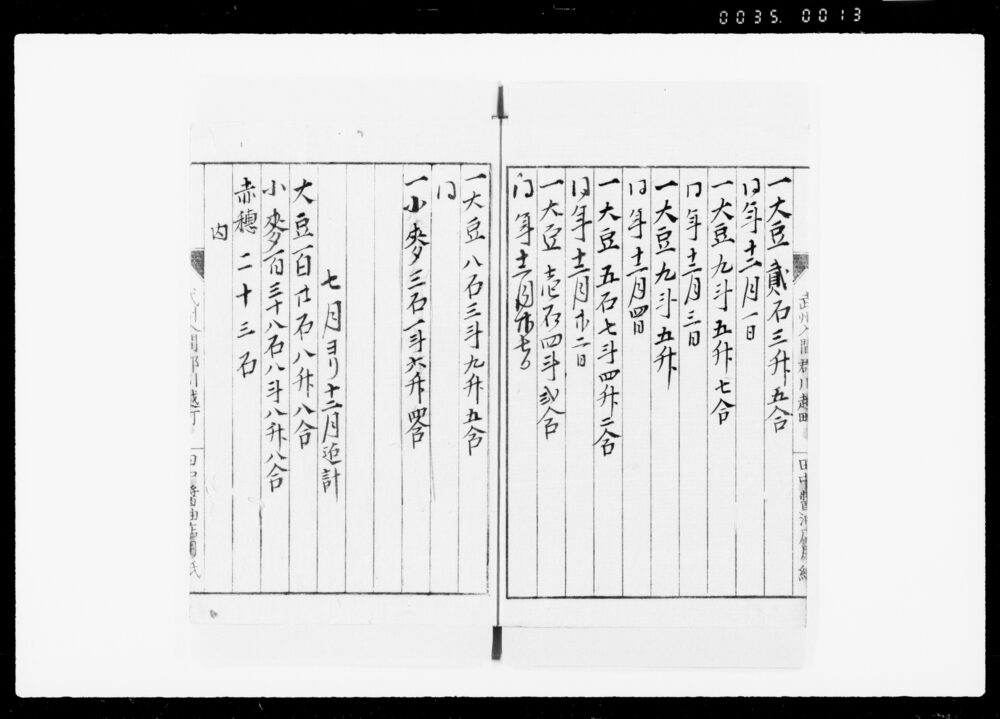 0035. 0013
武州入間郡川越町 田中醤油店用紙
一大豆貳石三升五合
同年十二月一日
一大豆九斗五升七合
同年十二月三日
一大豆九斗五升
同年十二月四日
一大豆五石七斗四升二合
同年十二月廿二日
一大豆壱石四斗弐合
同年十二月廿七日
一大豆八石三斗九升五合
同
一小麥三石一斗六升四合
七月ヨリ十二月迠計
大豆一百廿石八升八合
小麥一百三十八石八斗八升八合
赤穂二十三石
内
武州入間郡川越町 田中醤油店用紙